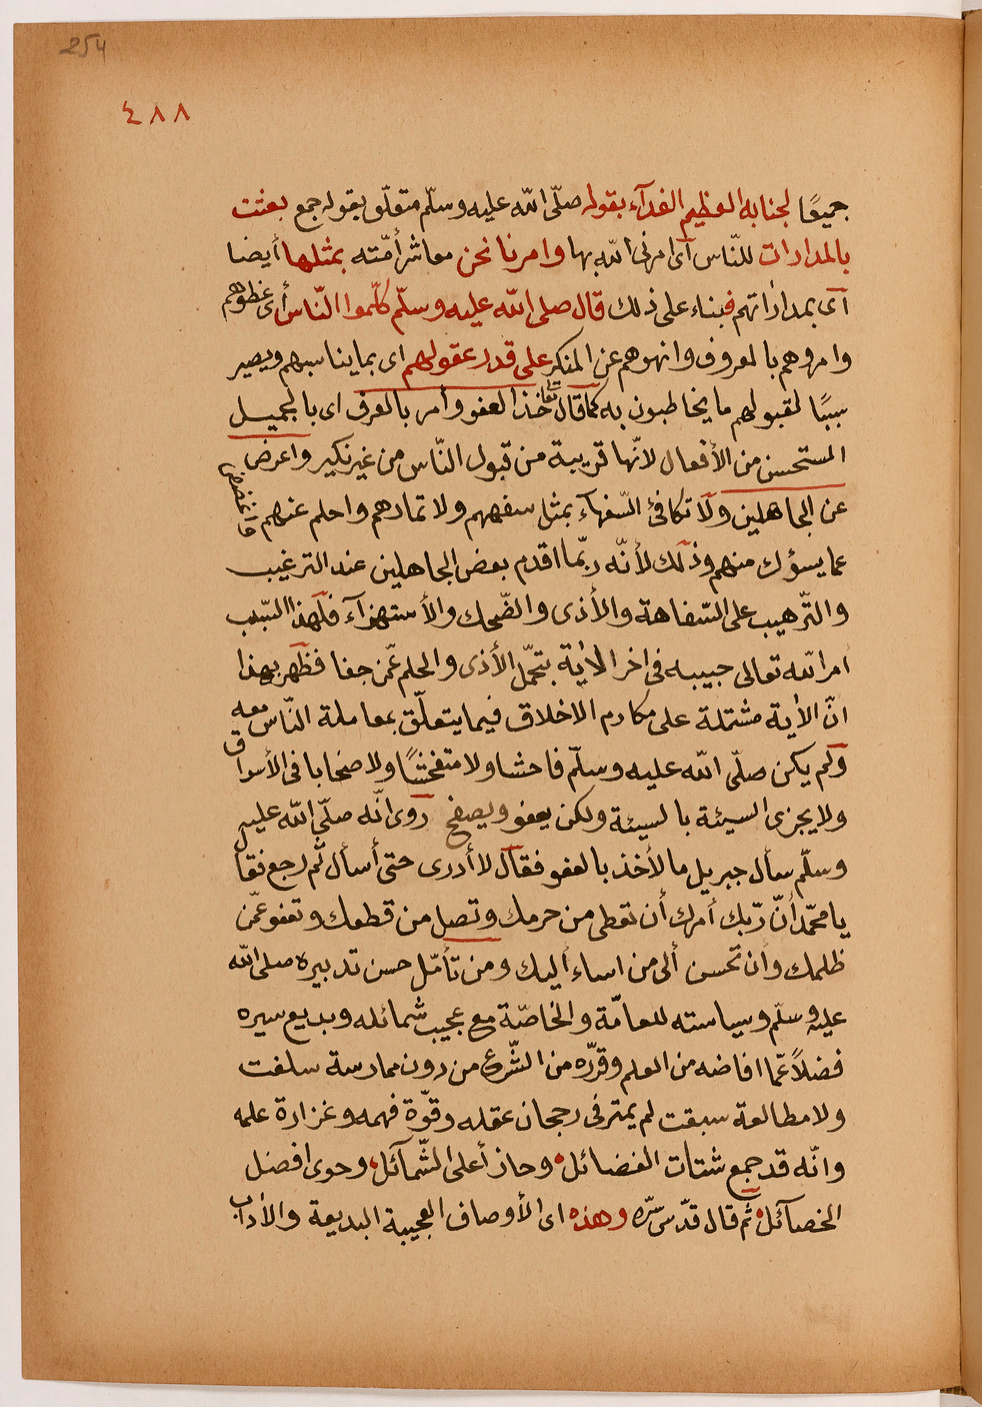 254
٤٨٨
جميعًا لجنابه العظيم الفدآء بقوله صلّى الله عليه وسلّم متعلّق بقوله جمع بعثت
بالمدارات للنّاس اى امرنى الله بها وامرنا نحن معاشر أمّته بمثلها أيضا
آى بمداراتهم فبناء على ذلك قال صلى الله عليه وسلّم كلّموا النّاس أى عظوهم
وامروهم بالمعروف وانهوهم عن المنكر على قدر عقولهم اى بما يناسبهم ويصير
سببًا لقبولهم ما يخاطبون به كما قال تعالى خذ العفو وأمر بالعرف اى بالجميل
المستحسن من الأفعال لانّها قريبة من قبول النّاس من غير نكير واعرض
عن الجاهلين ولا تكافئ السّفهآء بمثل سفههم ولا تمارهم واحلم عنهم
عما يسؤك منهم وذلك لأنّه ربّما اقدم بعض الجاهلين عند الترغيب
والتّرهيب على السّفاهة والأذى والضّحك والأستهزآء فلهذا السّبب
امر الله تعالى حبيبه فى اخر الأية بتحمّل الأذى والحلم عمّن جفا فظهر بهذا
انّ الأية مشتملة على مكارم الاخلاق فيما يتعلّق بمعاملة النّاس معه
ولم يكن صلّى الله عليه وسلّم فاحشا ولا متفحّشًا ولا صخابا فى الأسواق
ولا يجزى السيئة بالسيئة ولكن يعفو ويصفح روى انّه صلّى الله عليه
وسلّم سأل جبريل ما لأخذ بالعفو فقال لا أدرى حتى أسأل ثم رجع فقال
يا محمّد أنّ ربّك أمرك أن تعطى من حرمك وتصل من قطعك وتعفو عمّن
ظلمك وأن تحسن ألى من اساء أليك ومن تأمّل حسن تدبيره صلى الله
عليه وسلّم وسياسته للعامّة والخاصّة مع عجيب شمائله وبديع سيره
فضلاً عمّا افاضه من العلم وقرّره من الشّرع من دون ممارسة سلفت
ولا مطالعة سبقت لم يمتر فى رجحان عقله وقوّة فهمه وغزارة علمه
وانّه قد جمع شتات الفضائل وحاز أعلى الشّمآئل وحوى افضل
الخصآئل ثم قال قدّس سرّه وهذه اى الأوصاف العجيبة البديعة والأداب